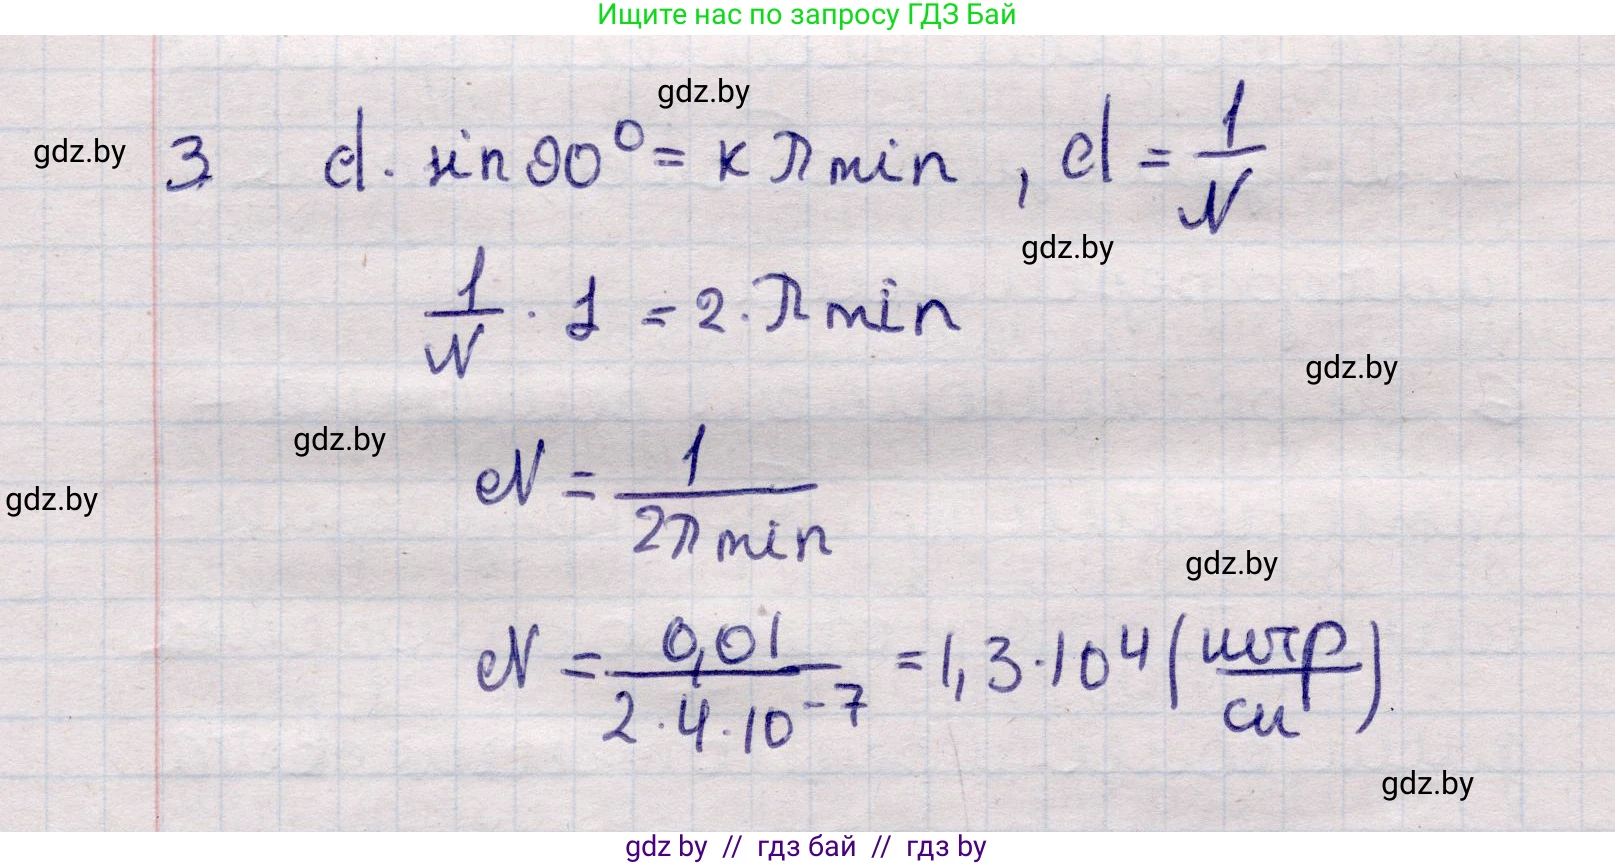 Ищите нас по запросу ГДЗ Бай
gdz.by
gdz.by
3 d · sin 90° = k λ min , d = 1/N
gdz.by
1/N · 1 = 2 · λ min
gdz.by
gdz.by
gdz.by
N = 1/(2λ min)
gdz.by
N = 0,01/(2·4·10⁻⁷) = 1,3·10⁴ (штр/см)
gdz.by
gdz by // гдз бай // гдз by